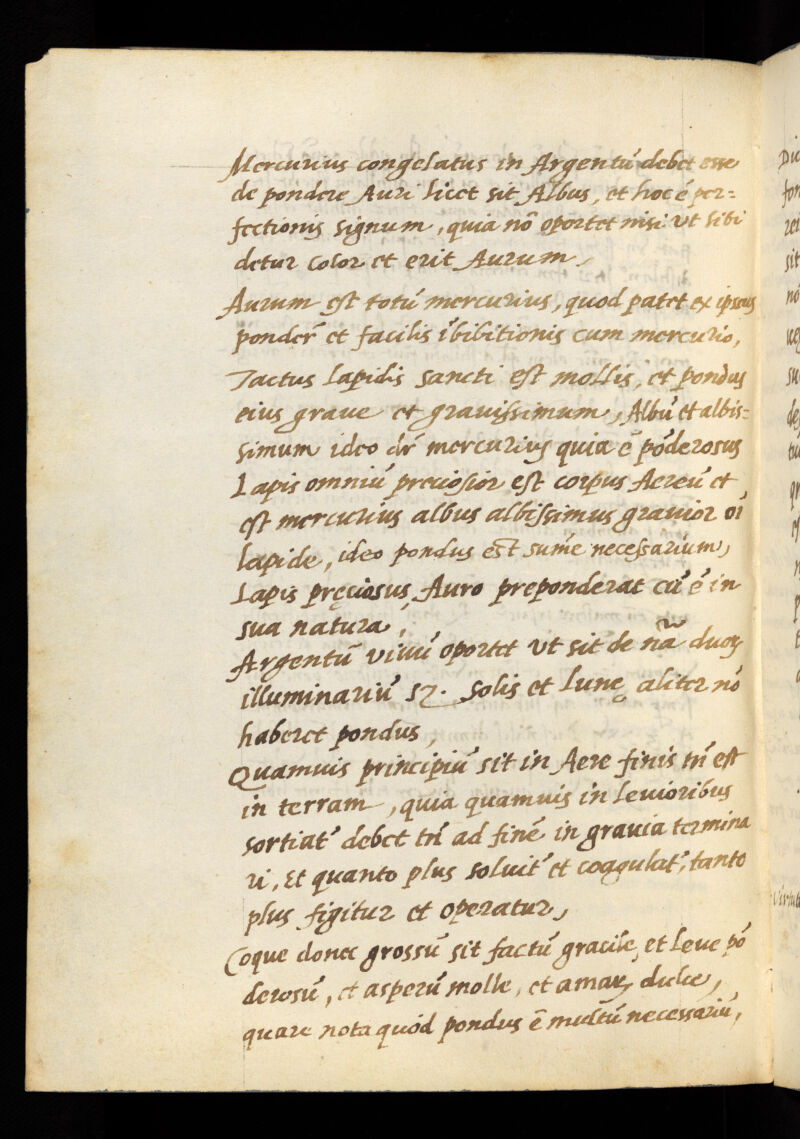 Mercurius congelatus in Argentū debet esse
de pondere Auri licet sit Albus, et hoc ē per=
fectionis signum, quia nō oportet nisi ut sibi
detur color et erit Aurum,
Aurum est totū mercurius, quod patet ex ipsius
ponder̄ et facilis ībibitionis cum mercurio,
Tactus lapidis sancti est mollis, et pondus
eius graue et grauissimum, Albū et albis=
simum ideo dr̄ mercurius quia ē pōderosus
Lapis omniū preciosior est corpus Aereū et
est mercurius albus albissimus grauior oī
lapide, ideo pondus est sum̄e necessarium,
Lapis pręciosus Auro preponderat cū ē in
sua natura,
Argentū uiuū oportet ut sit de nā duoꝝ
illuminariū sꝫ. solis et lunę aliter nō
haberet pondus,
Quamuis principiū sit in Aere finis tn̄ est
in terram, quia quamuis in leuioribus
sortiat᷑ debet tn̄ ad finē in grauia termina
ri, Et quanto plus soluit᷑ et coagulat᷑, tanto
plus figitur et operatur,
Coque donec grossū sit factū gracile, et leue pō
derosū, et asperū molle, et amaꝝ dulce,
quare nota quod pondus ē multū necessariū,
Dic
for
rei
sit
nō
su
de
tū
Virtut